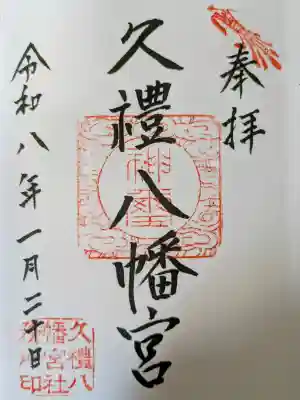 奉拝
久禮八幡宮
令和八年一月二十日
神璽
久禮八
幡宮社
務所印